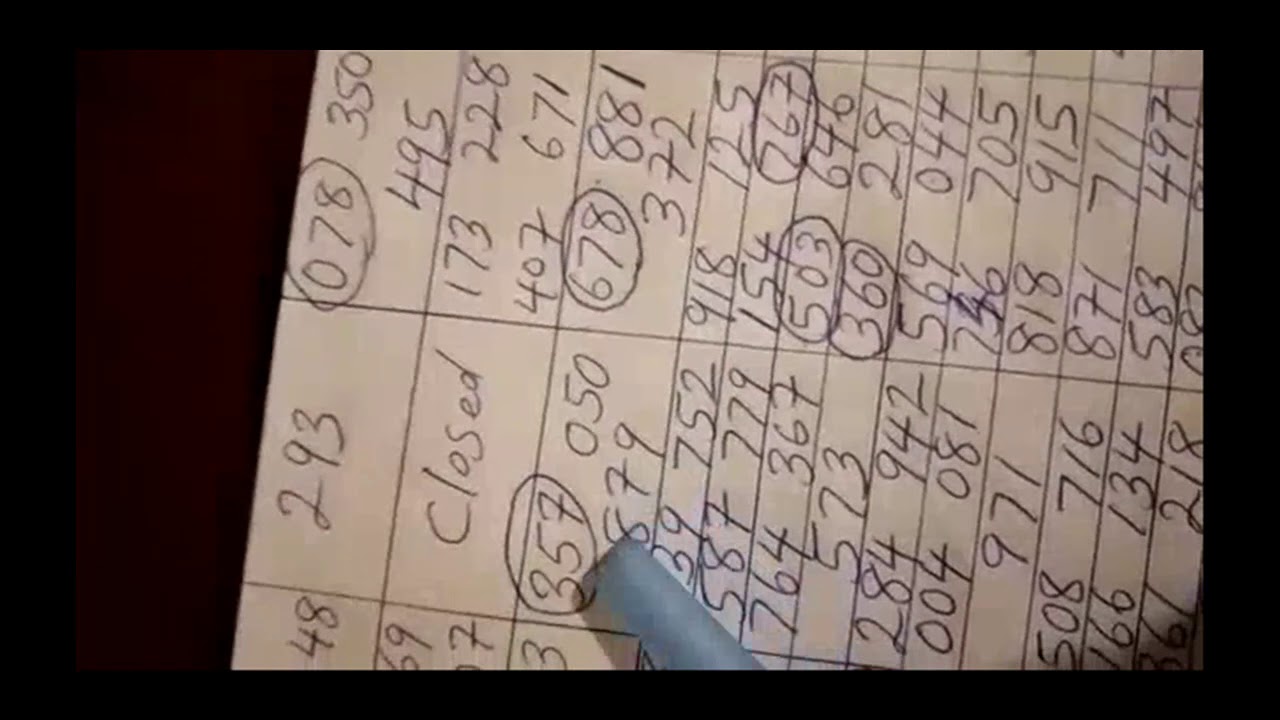 48 293 078 350
495
69 Closed 173 228
7 407 671
3 357 050 678 881
579 372
39 752 918 125
587 779 154 767
764 367 503 646
573 360 281
284 942 569 044
004 081 705
971 818 915
508 716 871 711
166 134 583 497
361 218